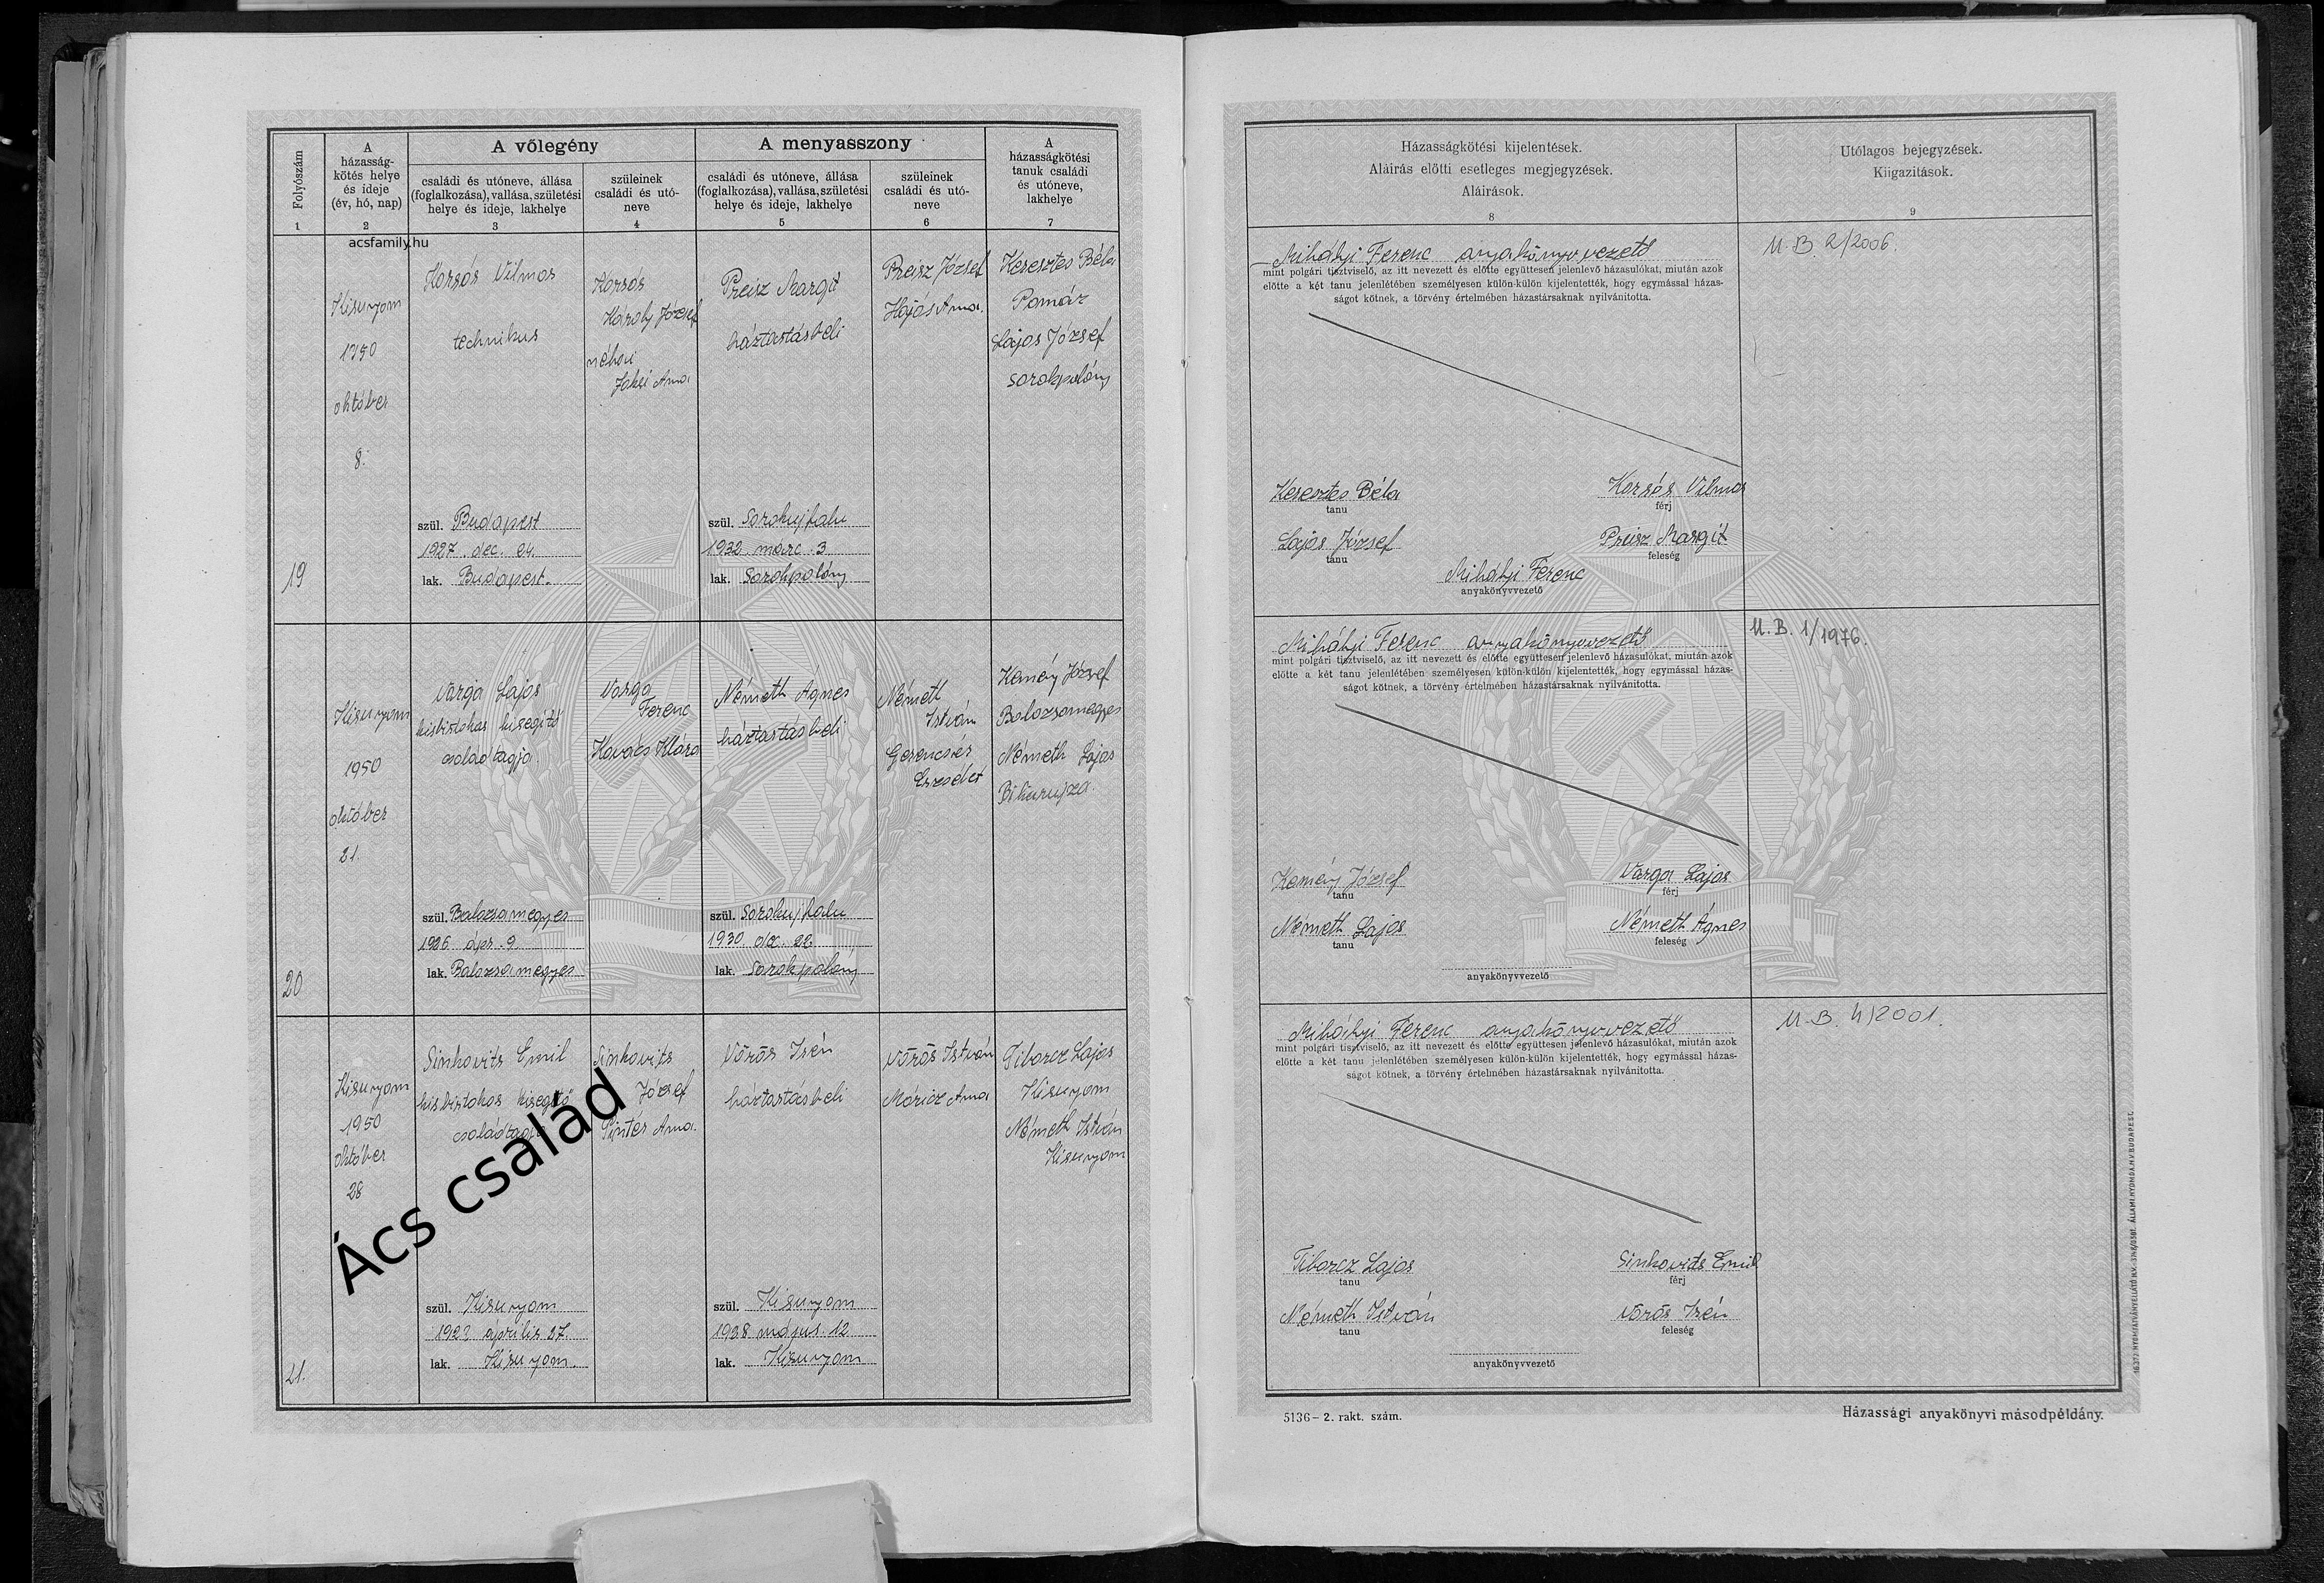 Folyószám
1
A
házasság-
kötés helye
és ideje
(év, hó, nap)
2
A vőlegény
családi és utóneve, állása
(foglalkozása), vallása, születési
helye és ideje, lakhelye
3
szüleinek
családi és utó-
neve
4
A menyasszony
családi és utóneve, állása
(foglalkozása), vallása, születési
helye és ideje, lakhelye
5
szüleinek
családi és utó-
neve
6
A
házasságkötési
tanuk családi
és utóneve,
lakhelye
7
acsfamily.hu
19
Kisunyom
1950
október
8.
Korsós Vilmos
technikus
szül. Budapest
1927. dec. 24.
lak. Budapest.
Korsós
Károly József
néhai
Jaksi Anna
Preisz Margit
háztartásbeli
szül. Sorokujfalu
1932 márc. 3
lak. Sorokpolány
Preisz József
Hajós Anna.
Keresztes Béla
Pomáz
Lajos József
Sorokpolány
20
Kisunyom
1950
október
21.
Varga Lajos
kisbirtokos kisegítő
családtagja.
szül. Balozsameggyes
1926 ápr. 9
lak. Balozsameggyes
Varga
Ferenc
Kovács Klára
Németh Ágnes
háztartásbeli
szül. Sorokujfalu
1930 dec. 22
lak. Sorokpolány
Németh
István
Gerencsér
Erzsébet
Kemény József
Balozsameggyes
Németh Lajos
21.
Kisunyom
1950
október
28
Sinkovits Emil
kisbirtokos kisegítő
családtagja
szül. Kisunyom
április 27.
lak. Kisunyom.
Sinkovits
József
Pintér Anna.
Vörös Irén
háztartásbeli
szül. Kisunyom
1928 május 12
lak. Kisunyom
Vörös István
Móricz Anna
Tiborcz Lajos
Kisunyom
Németh István
Kisunyom
Ács család
Házasságkötési kijelentések.
Aláirás előtti esetleges megjegyzések.
Aláirások.
8
Utólagos bejegyzések.
Kiigazitások.
9
Mihályi Ferenc anyakönyvvezető
mint polgári tisztviselő, az itt nevezett és előtte együttesen jelenlevő házasulókat, miután azok
előtte a két tanu jelenlétében személyesen külön-külön kijelentették, hogy egymással házas-
ságot kötnek, a törvény értelmében házastársaknak nyilvánitotta.
U.B. 2/2006.
Keresztes Béla
tanu
Korsós Vilmos
férj
Lajos József
tanu
Preisz Margit
feleség
Mihályi Ferenc
anyakönyvvezető
Mihályi Ferenc anyakönyvvezető
mint polgári tisztviselő, az itt nevezett és előtte együttesen jelenlevő házasulókat, miután azok
előtte a két tanu jelenlétében személyesen külön-külön kijelentették, hogy egymással házas-
ságot kötnek, a törvény értelmében házastársaknak nyilvánitotta.
U.B. 1/1976.
Kemény József
tanu
Varga Lajos
férj
Németh Lajos
tanu
Németh Ágnes
feleség
anyakönyvvezető
Mihályi Ferenc anyakönyvvezető
mint polgári tisztviselő, az itt nevezett és előtte együttesen jelenlevő házasulókat, miután azok
előtte a két tanu jelenlétében személyesen külön-külön kijelentették, hogy egymással házas-
ságot kötnek, a törvény értelmében házastársaknak nyilvánitotta.
U.B. 4/2001.
Tiborcz Lajos
tanu
Sinkovits Emil
férj
Németh István
tanu
Vörös Irén
feleség
anyakönyvvezető
5136 – 2. rakt. szám.
Házassági anyakönyvi másodpéldány.